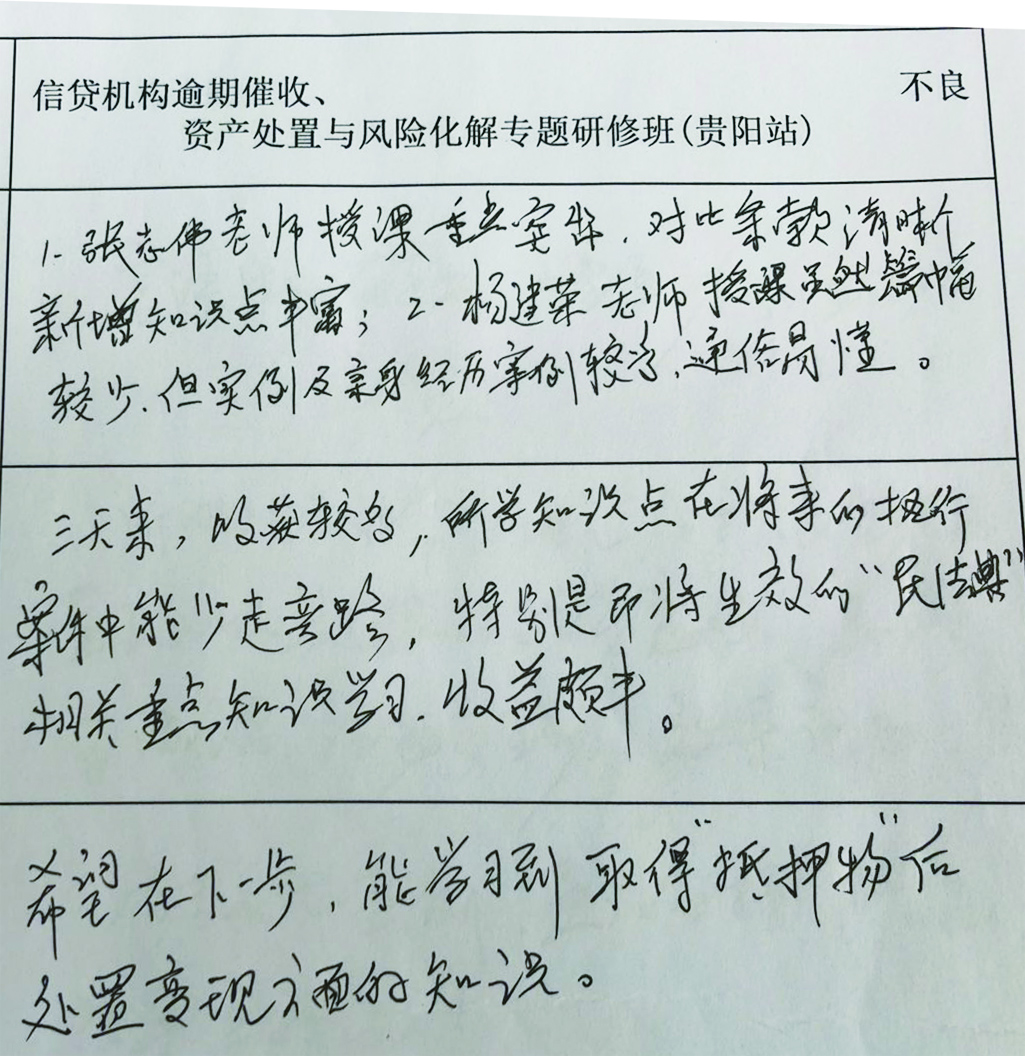 信贷机构逾期催收、 不良
资产处置与风险化解专题研修班(贵阳站)
1. 张志伟老师授课重点突出，对比条款清晰
新增知识点丰富；2. 杨建荣老师授课虽然篇幅
较少，但实例及亲身经历案例较多，通俗易懂。
三天来，收获较多，所学知识点在将来的执行
案件中能少走弯路，特别是即将生效的“民法典”
相关重点知识学习，收益颇丰。
希望在下一步，能学习到取得“抵押物”后
处置变现方面的知识。